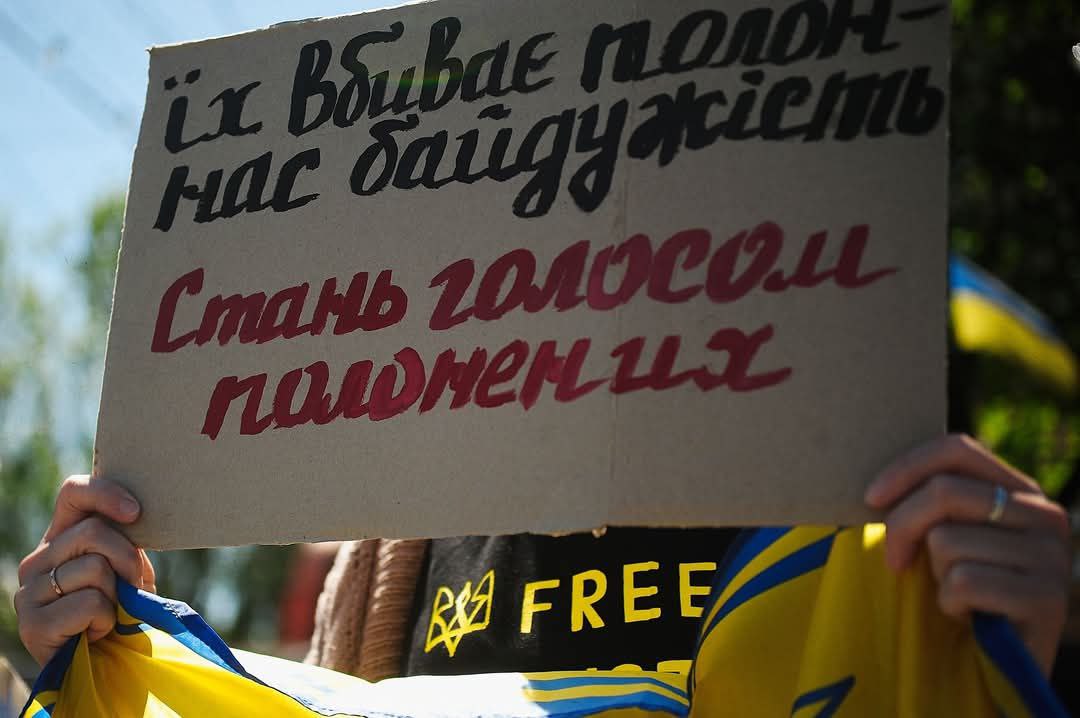 їх вбиває полон-
нас байдужість
Стань голосом
полонених
FREE